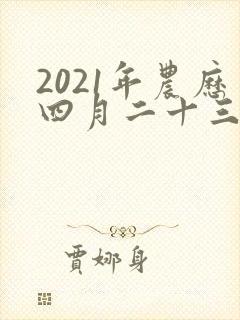 2021年農歷
四月二十三
賈娜身